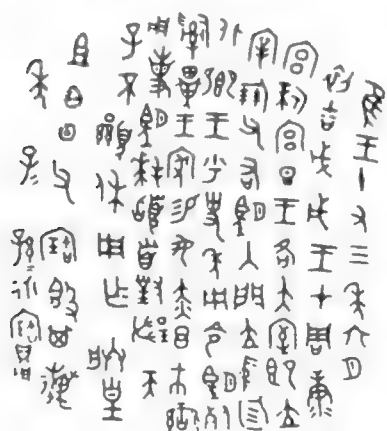 隹王十又三年六月
初吉戊戌王才周康
宮新宮旦王各大室即立
宰倗父右朢入門立中廷
北卿王乎史年冊令朢死
𤔲畢王家易女赤市䜌
用事朢拜𩒨首對揚天
子不顯休用乍朕皇
且白甲父寶𣪘其萬
年子孫永寶用